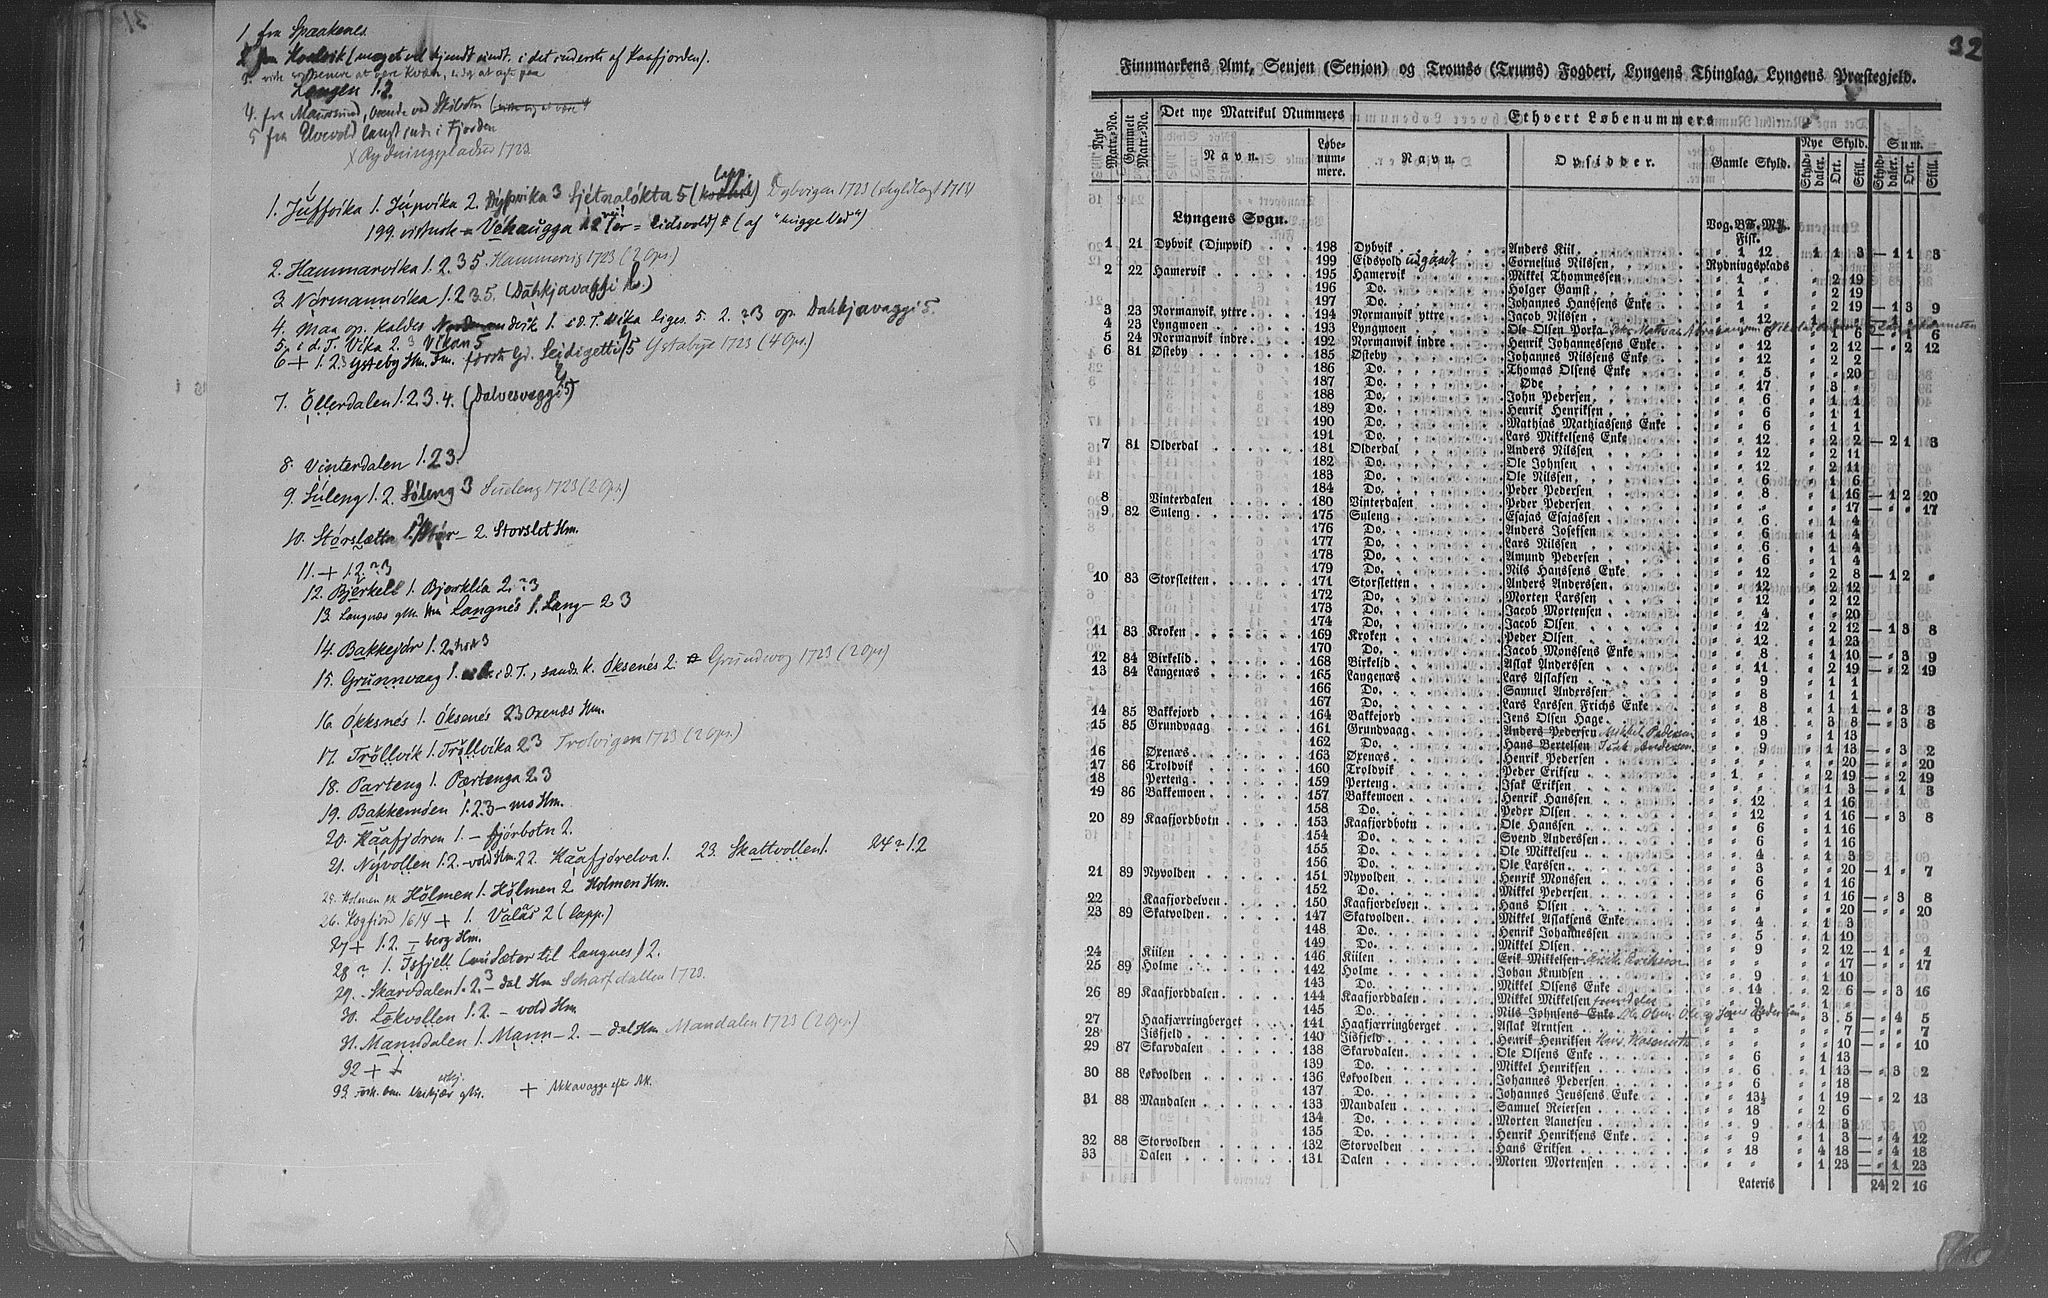 1. fra Spaakenes.
2. fra Koalvik (meget vel kjendt indt. i det inderste af Kaafjorden).
Lyngen 1.2.
4. fra Maursund, boende ved Skibotn
5 fra Elvevold langt inde i Fjorden
x Rydningspladser 1723.
1. Júffvika 1. Júpvika 2. Dýpvika 3 Sjetnalokta 5 (lapp.) Dybvigen 1723 (skyldlagt 1713)
2. Hammarvika 1.2.3.5. Hammervig 1723 (2 Ops.)
3. Normannvika 1.2.3.5. (Dáhkjavaggi)
4. Maa op. kaldes
5. i d. T. Vika 2. 3 Vikan 5
6 + 1. 2.3 Ysteby Hm. Ystabye 1723 (4 Ops.)
7. Ollerdalen 1.2.3.4. (Dalvesvaggi 5)
8. Vinterdalen 1.2 3.
9. Súleng 1.2. Söleng 3 Suuleng 1723 (2 Ops)
10. Storslætta 1. Stór- 2. Storslet Hm.
11. + 1.2. ? 3
12. Bjerkeli 1. Bjorklia 2. ? 3
13. Langnæs Langnés 1. Lang- 2 3
14. Bakkejór 1. 2. 3
15. Grunnvaag 1. i d. T., sands. k. Oksenés 2. Grundwog 1723 (2 Ops)
16. Okksnés 1. Oksenés 2 3 Oxenæs Hm.
17. Trollvik 1. Trollvika 2 3 Trolvigen 1723 (2 Ops.)
18. Parteng 1. Pærtenga 2. 3
19. Bakkemoen 1. 2 3 – mo Hm.
20. Kaafjoren 1. – fjórbotn 2.
21. Nyvollen 1. 2. – vold Hm. 22. Kaafjorelva 1. 23. Skattvollen 1. 24 ? 1. 2
25. Holmen Holmen 1. Holmen 2 Holmen Hm.
26. Kogfiord 1614 + 1. Valás 2 (lapp.)
27 + 1.2. – berg Hm.
28 ? 1. Isfjell (nu Sæter til Langnes) 2.
29. Skardalen 1. 2. 3 – dal Hm Scharfdallen 1723.
30. Lokvollen 1.2 – vold Hm.
31. Manndalen 1. Mann- 2. – dal Hm Mandalen 1723 (2 Ops.)
32 + +
33. + Akkavagge
32
Finnmarkens Amt, Senjen (Senjon) og Tromsø (Trums) Fogderi, Lyngens Thinglag, Lyngens Præstegjeld.
Nyt Matr.-No. Gammelt Matr.-No. Det nye Matrikul Nummers Ethvert Løbenummers
Navn. Løbenummere. Navn. Opsidder. Gamle Skyld. Nye Skyld. Sum.
Skylddaler. Ort. Skill. Skylddaler. Ort. Skill.
Lyngens Sogn. Vog. Bf. Mk. Fisk.
1 21 Dybvik (Djupvik) 198 Dybvik Anders Kiil " 1 12 1 1 3 – 1 1 3
199 Eidsvold udgaaet Cornelius Nilssen Rydningsplads
2 22 Hamervik 195 Hamervik Mikkel Thommessen " 1 " " 2 19
196 Do. Holger Gamst " 1 " " 2 19
197 Do. Johannes Hanssens Enke " 1 " " 2 19 – 1 3 9
3 23 Normanvik yttre 194 Normanvik yttre Jacob Nilssen
4 23 Lyngmoen 193 Lyngmoen Ole Olsen Porka
5 24 Normanvik indre 192 Normanvik indre Henrik Johannessens Enke " " 12 " 2 12 – " 2 12
6 81 Østeby 185 Østeby Johannes Nilssens Enke " " 12 " 2 2
186 Do. Thomas Olsens Enke " " 5 " " 20
187 Do. Øde " " 17 " 3 "
188 Do. John Pedersen " " 6 " 1 1
189 Do. Henrik Henriksen " " 6 " 1 1
190 Do. Mathias Mathiassens Enke " " 6 " 1 1
191 Do. Lars Mikkelsens Enke " " 12 " 2 2 – 2 1 3
7 81 Olderdal 181 Olderdal Anders Nilssen " " 12 " 2 11
182 Do. Ole Johnsen " " 12 " 2 11
183 Do. Ole Nilssen " " 6 " 1 6
184 Do. Peder Pedersen " " 8 " 1 16 – 1 2 20
8 Vinterdalen 180 Vinterdalen Peder Pedersen " " " " " 17 – " " 17
9 82 Suleng 175 Suleng Esajas Esajassen " " 6 " 1 4
176 Do. Anders Josefssen " " 6 " 1 4
177 Do. Lars Nilssen " " 6 " 1 4
178 Do. Amund Pedersen " " 6 " 1 4
179 Do. Nils Hanssens Enke " " 12 " 2 8 – 1 2 "
10 83 Storsletten 171 Storsletten Anders Anderssen " " 12 " 2 12
172 Do. Morten Larssen " " 12 " 2 12
173 Do. Jacob Mortensen " " 4 " " 20
174 Do. Jacob Olsen " " 12 " 2 12 – 1 3 8
11 83 Kroken 169 Kroken Peder Olsen " " 12 " 1 23
170 Do. Jacob Monssens Enke " " 8 " 1 10 – " 3 9
12 84 Birkelid 168 Birkelid Aslak Anderssen " " 11 " 2 19 – " 2 19
13 84 Langenæs 165 Langenæs Lars Aslaksen " " 9 " 1 1
166 Do. Samuel Anderssen " " 8 " 1 1
167 Do. Lars Larssen Frichs Enke " " 8 " 1 1 – " 3 3
14 85 Bakkejord 164 Bakkejord Jens Olsen Hage " " 18 " 3 8 – " 3 8
15 85 Grundvaag 161 Grundvaag Anders Pedersen Mikkel Pedersen " " 9 " 1 13
162 Do. Hans Bertelsen Isak Andersen " " 9 " 1 13 – " 3 2
16 Øxenæs 163 Øxenæs Henrik Pedersen " " " " " 20 – " " 20
17 86 Troldvik 160 Troldvik Peder Eriksen " 1 " " 2 19 – " 2 19
18 Perteng 159 Perteng Isak Eriksen " " " " 1 3 – " 1 3
19 86 Bakkemoen 157 Bakkemoen Henrik Hanssen " " 12 " 1 16
158 Do. Peder Olsen " " 12 " 1 16 – " 3 8
20 89 Kaafjordbotn 153 Kaafjordbotn Ole Hanssen " " 6 " 1 16
154 Do. Svend Anderssen " " 6 " 1 16
155 Do. Ole Mikkelsen " " 4 " 1 3
156 Do. Ole Larssen " " 3 " " 20 – 1 " 7
21 89 Nyvolden 151 Nyvolden Henrik Monssen " " 6 " 1 16
152 Do. Mikkel Pedersen " " 6 " 1 16 – " 3 8
22 Kaafjordelven 150 Kaafjordelven Hans Olsen " " " " " 20 – " " 20
23 89 Skatvolden 147 Skatvolden Mikkel Aslaksens Enke " " 4 " 1 3
148 Do. Henrik Johannessen " " 5 " 1 10
149 Do. Mikkel Olsen " " 9 " 2 12 – 1 " 1
24 Kiilen 146 Kiilen Erik Mikkelsen Erik Eriksen " " " " " 17 – " " 17
25 89 Holme 142 Holme Johan Knudsen " " 9 " 1 10
143 Do. Mikkel Olsens Enke " " 14 " 2 6 – " 3 16
26 89 Kaafjorddalen 144 Kaafjorddalen Mikkel Mikkelsen " " 9 " 1 "
145 Do. Nils Johnsens Enke " 3 5 – " 4 5
27 Haakjærringberget 141 Haakjærringberget Aslak Arntsen " " " " " 7 – " " 7
28 Jisfjeld 140 Jisfjeld Henrik Henriksen " " " " " 10 – " " 10
29 87 Skarvdalen 138 Skarvdalen Ole Olsens Enke " " 6 " 1 13
139 Do. Mikkel Henriksen " " 6 " 1 13 – " 3 2
30 88 Løkvolden 136 Løkvolden Johannes Pedersen " " 6 " " 18
137 Do. Johannes Jenssens Enke " " 13½ " 1 19 – " 2 13
31 88 Mandalen 133 Mandalen Samuel Reiersen " " 18 " 2 6
134 Do. Morten Aanetsen " " 9 " 1 3
135 Do. Henrik Henriksens Enke " " 9 " 1 3 – " 4 12
32 88 Storvolden 132 Storvolden Hans Eriksen " " 18 " 4 18 – " 4 18
33 Dalen 131 Dalen Morten Mortensen " " " " 1 23 – " 1 23
Lateris 24 2 16